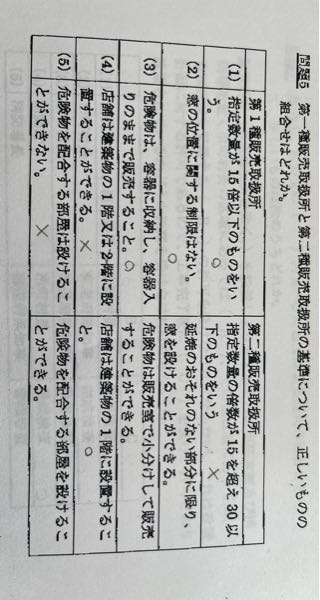 問題5　第一種販売取扱所と第二種販売取扱所の基準について、正しいものの
組合せはどれか。
第1種販売取扱所
第二種販売取扱所
(1)
指定数量が15倍以下のものをい
う。　○
指定数量の倍数が15を超え30以
下のものをいう　×
(2)
窓の位置に関する制限はない。
○
延焼のおそれのない部分に限り、
窓を設けることができる。
(3)
危険物は、容器に収納し、容器入
りのままで販売すること。○
危険物は販売室で小分けして販売
することができる。
(4)
店舗は建築物の1階又は2階に設
置することができる。×
店舗は建築物の1階に設置するこ
と。　○
(5)
危険物を配合する部屋は設けるこ
とができない。　×
危険物を配合する部屋を設けるこ
とができる。